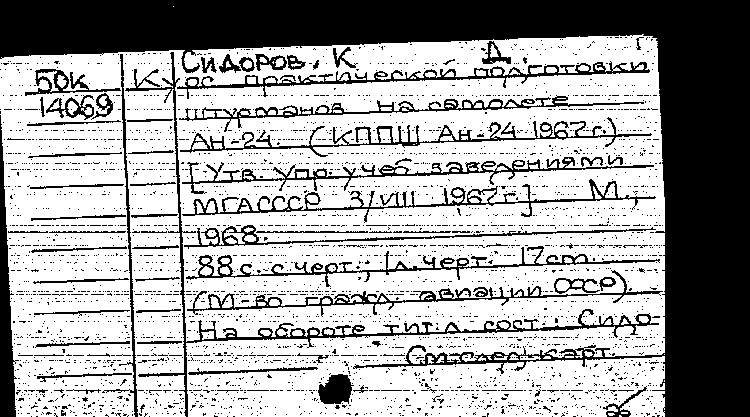 Сидоров, К. Д.
БОК Курс практической подготовки
14069 штурманов на самолете
Ан-24. (КППШ Ан-24 1967 г.)
[Утв. Упр. учеб. заведениями
МГАСССР 3/VIII 1967 г.] М.,
1968.
88 с. с черт.; 1 л. черт. 17 см.
(М-во гражд. авиации СССР).
На обороте тит. л. сост.: Сидо-
См. след. карт.